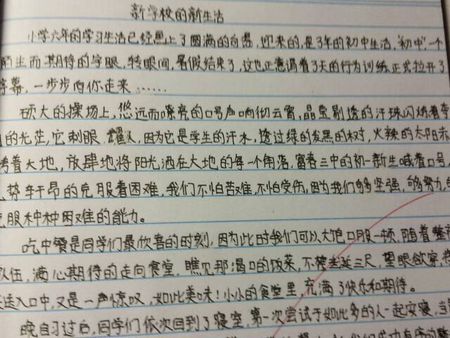 新学校的新生活
小学六年的学习生活已经画上了圆满的句号，迎来的，是3年的初中生活，"初中"一个
陌生而期待的字眼，转眼间，暑假结束了，这也正意谓着了天的行为训练正式拉开了
序幕，一步步向你走来……
硕大的操场上，悠远而嘹亮的口号声响彻云霄，晶莹剔透的汗珠闪烁着
的光芒，它刺眼、耀人，因为它是学生的汗水，透过绿的发黑的树，火辣的太阳
烤着大地，放肆地将阳光洒在大地的每一个角落，富春三中的初一新生喊着口号，
气势轩昂的克服着困难，我们不怕苦难，不怕受伤，因为我们够坚强，够努力，
克服种种困难的能力。
吃中餐是同学们最欣喜的时刻，因为此时我们可以大饱口服一顿，随着整
队伍，满心期待的走向食堂，瞧见那可口的饭菜，不禁垂涎三尺，望眼欲穿，
送入口中，又是一声惊叹，如此美味！小小的食堂里，充满了快乐和期待。
晚自习过后，同学们依次回到了寝室，第一次尝试于如此多的人一起安寝，当